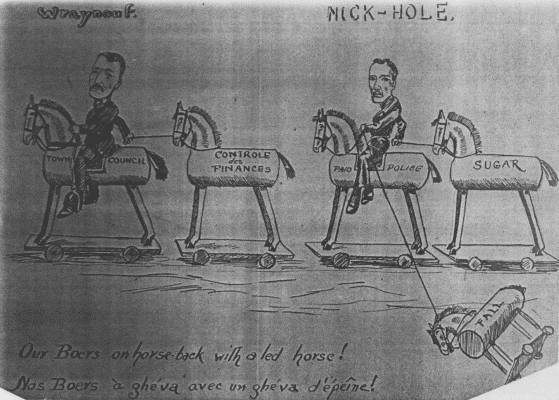 Wraynouf. NICK-HOLE.
TOWN COUNCIL
CONTROLE
des
FINANCES
PAID POLICE
SUGAR
FALL
Our Boers on horse-back with a led horse!
Nos Boers à ghéva avec un ghéva d'épeîne!